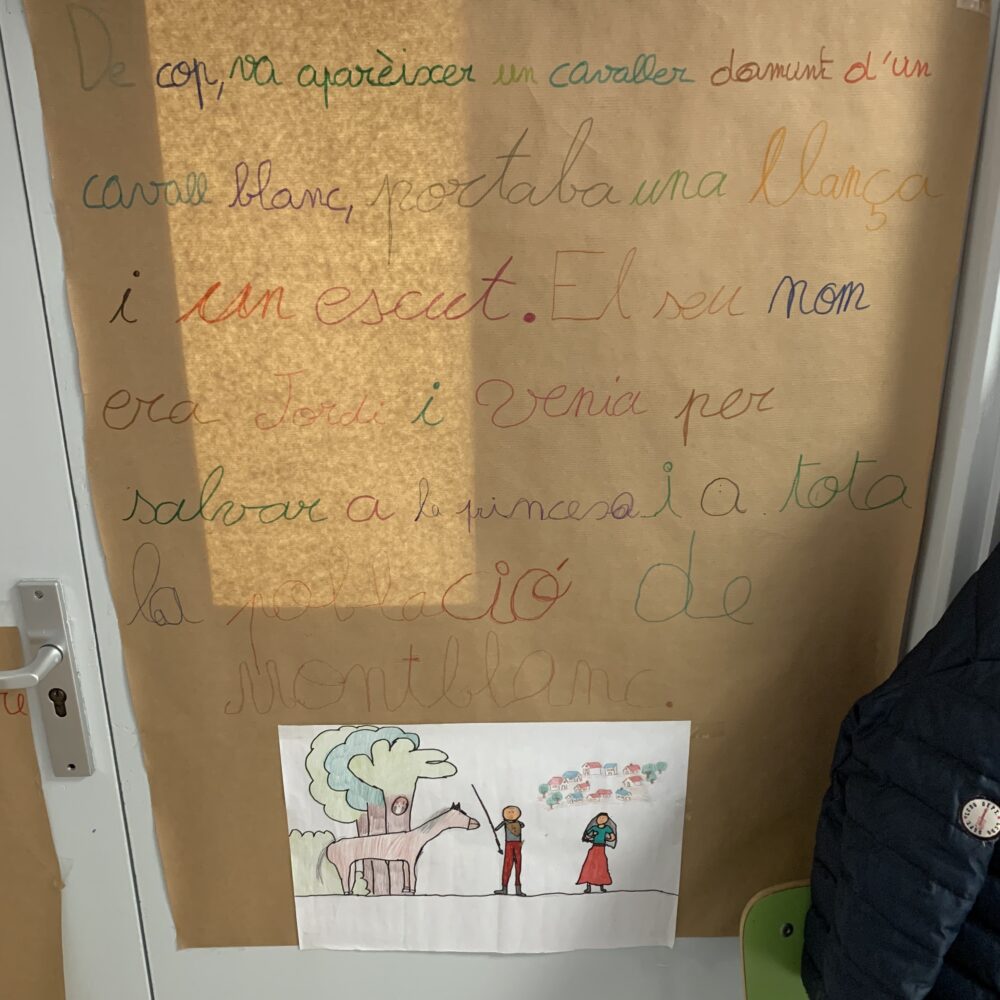 De cop, va aparèixer un cavaller damunt d'un
cavall blanc, portaba una llança
i un escut. El seu nom
era Jordi i venia per
salvar a la princesa i a tota
la població de
Montblanc.
re